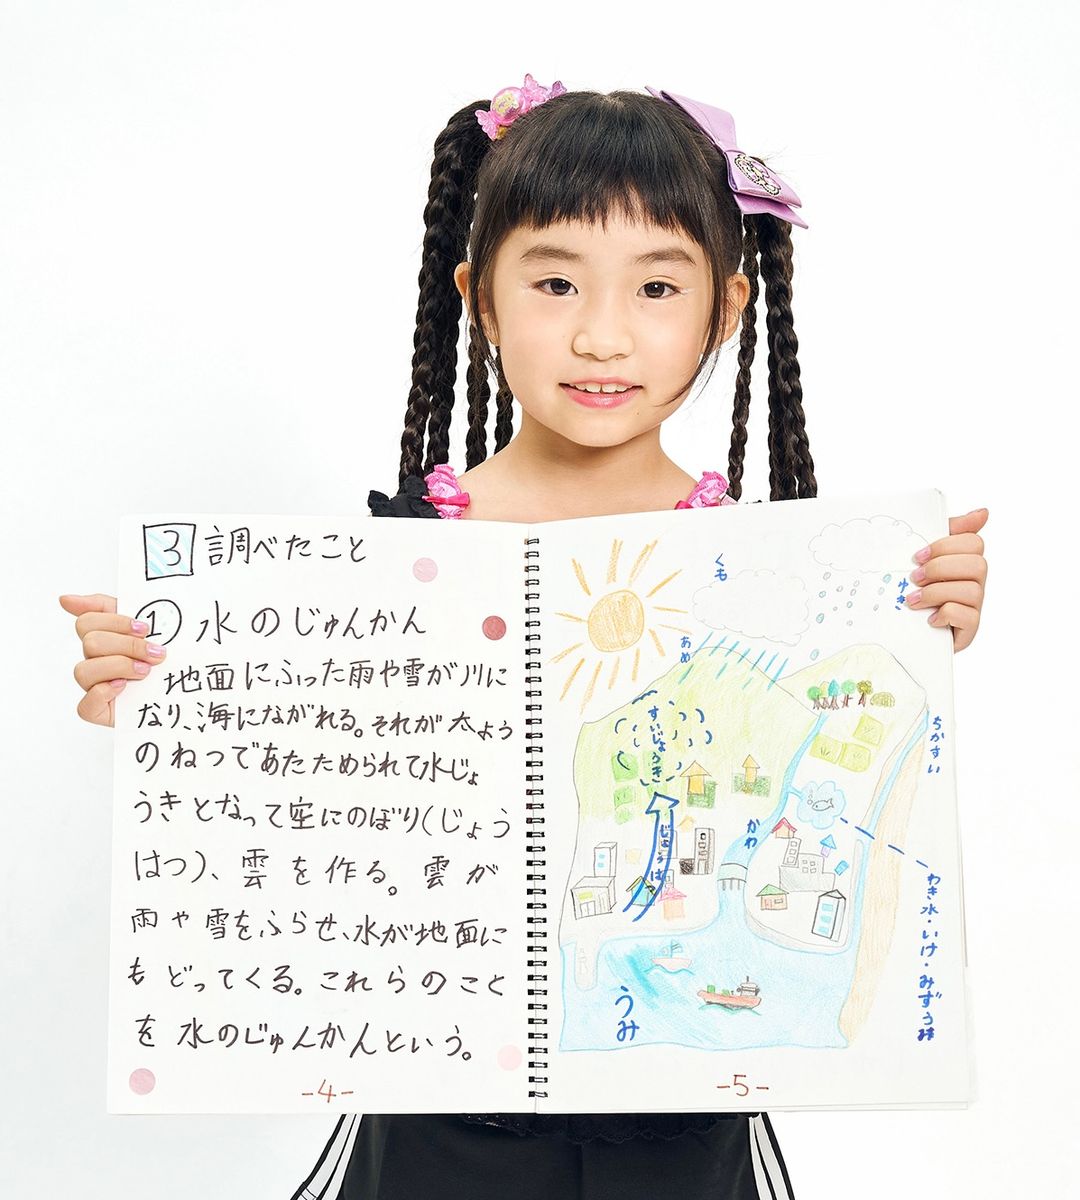 3 調べたこと
① 水のじゅんかん
地面にふった雨や雪が川に
なり、海にながれる。それが太よう
のねつであたためられて水じょ
うきとなって空にのぼり(じょう
はつ)、雲を作る。雲が
雨や雪をふらせ、水が地面に
もどってくる。これらのこと
を水のじゅんかんという。
-4-
くも
ゆき
あめ
すいじょうき
ちかすい
じょうはつ
かわ
わき水・いけ・みずうみ
うみ
-5-